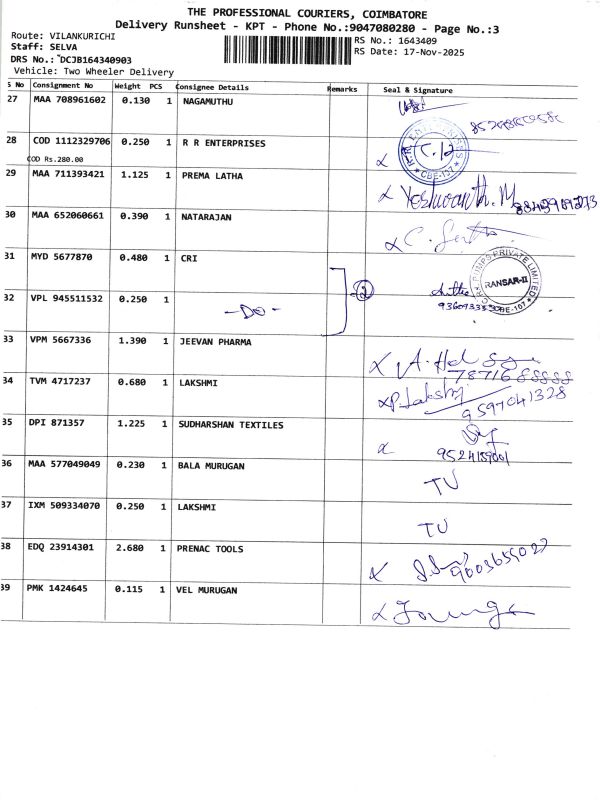 THE PROFESSIONAL COURIERS, COIMBATORE
Delivery Runsheet - KPT - Phone No.:9047080280 - Page No.:3
Route: VILANKURICHI
RS No.: 1643409
Staff: SELVA
RS Date: 17-Nov-2025
DRS No.: DCJB164340903
Vehicle: Two Wheeler Delivery
S No Consignment No Weight PCS Consignee Details Remarks Seal & Signature
27 MAA 708961602 0.130 1 NAGAMUTHU
28 COD 1112329706 0.250 1 R R ENTERPRISES
COD Rs.280.00
CBE-107
29 MAA 711393421 1.125 1 PREMA LATHA Yeshwanth. M
30 MAA 652060661 0.390 1 NATARAJAN
31 MYD 5677870 0.480 1 CRI
PUMPS PRIVATE LIMITED
RANSAR-II
CBE-107
2
32 VPL 945511532 0.250 1 - DO -
33 VPM 5667336 1.390 1 JEEVAN PHARMA
34 TVM 4717237 0.680 1 LAKSHMI P. Lakshmy
9597041328
35 DPI 871357 1.225 1 SUDHARSHAN TEXTILES
9524189001
36 MAA 577049049 0.230 1 BALA MURUGAN TU
37 IXM 509334070 0.250 1 LAKSHMI TU
38 EDQ 23914301 2.680 1 PRENAC TOOLS
39 PMK 1424645 0.115 1 VEL MURUGAN